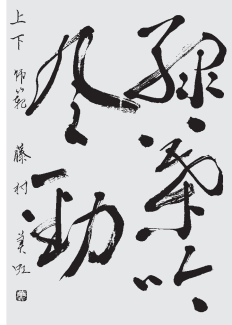 緑葉吟
風動
上下 師範 藤村美虹